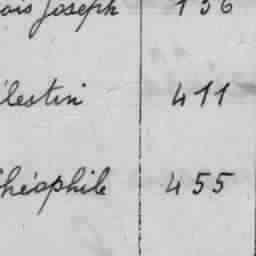 ois Joseph 136
lestin 411
héophile 455